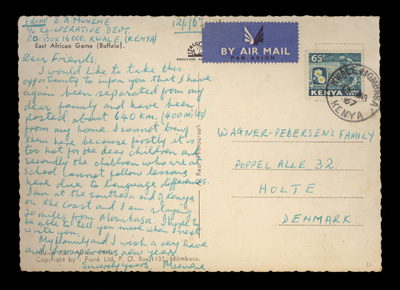 FROM D A MUNENE
% CO-OPERATIVE DEPT.
P.O. BOX 16000, KWALE, (KENYA)
12/67
East African Game (Buffalo).
Dear Friends,
I would like to take this
opportunity to inform you that I have
again been separated from my
dear family and have been
posted about 640 km. (400 miles)
from my home. I cannot bring
them here because firstly it is
too hot for the dear children and
secondly the children who are at
school cannot follow lessons
here due to language differences.
I am at the south of Kenya
on the Coast and I am staying
20 miles from Mombasa. I hope to
be able to tell you more when I next
write you.
My family and I wish a very
and prosperous new year
Sincerely yours, Munene
Copyright by Frank Ltd, P.O. Mombasa.
Real Photograph
BY AIR MAIL
PAR AVION
65
KENYA
MOMBASA
67
KENYA
WAGNER-PEDERSEN'S FAMILY
POPPEL ALLE 32
HOLTE
DENMARK